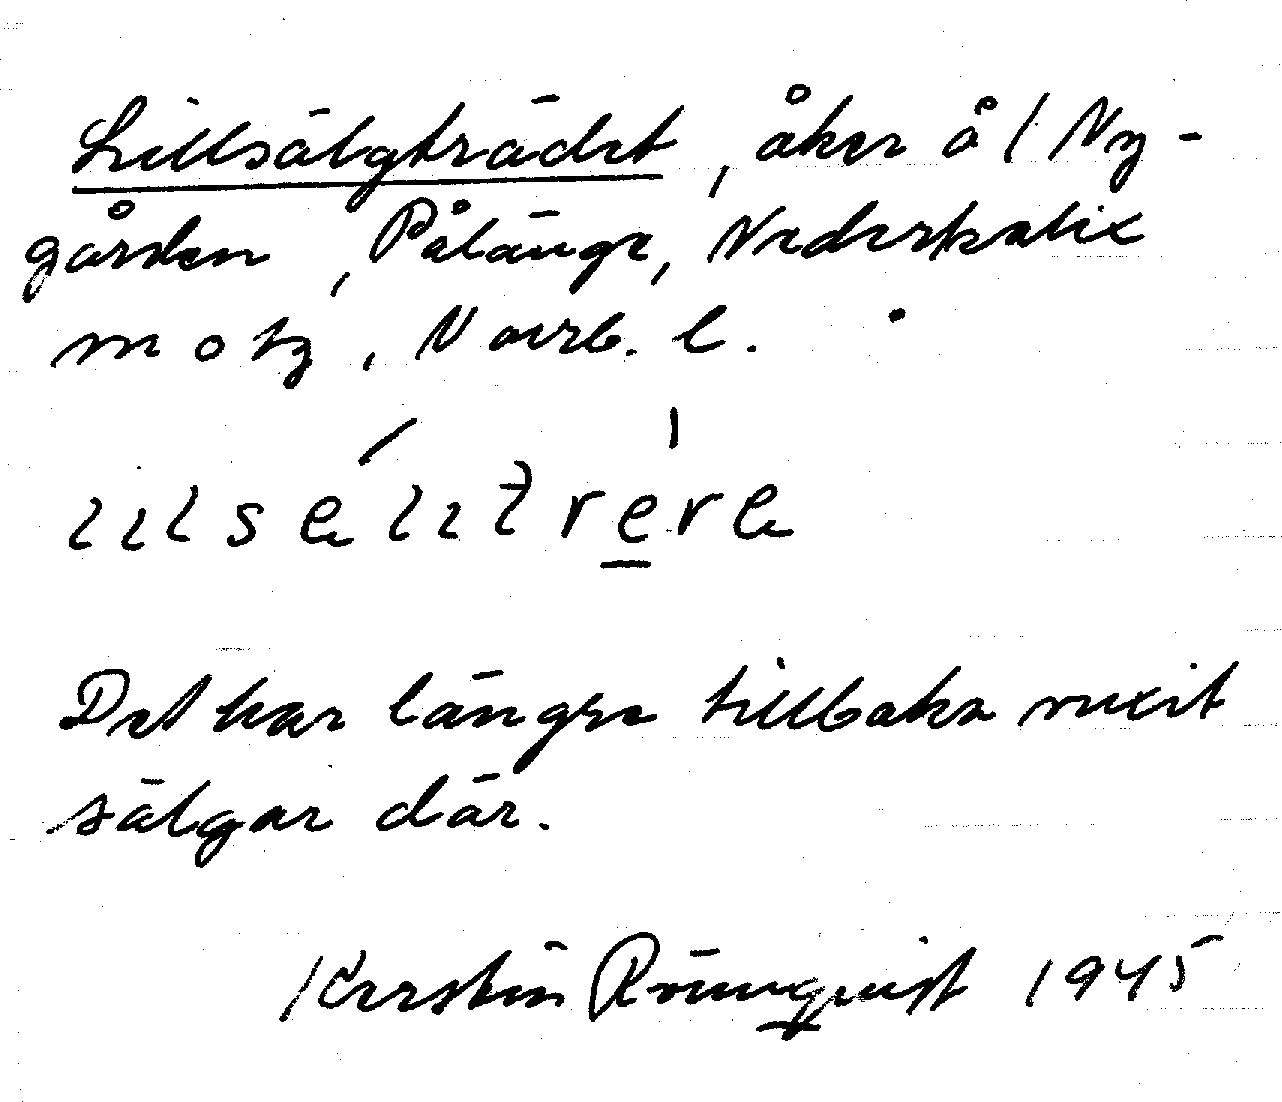 Lillsälgträdet, åker å / Ny-
gården, Pålänge, Nederkalix
Norrb. l.
Det har längre tillbaka vuxit
sälgar där.
Kerstin Rönnquist 1945